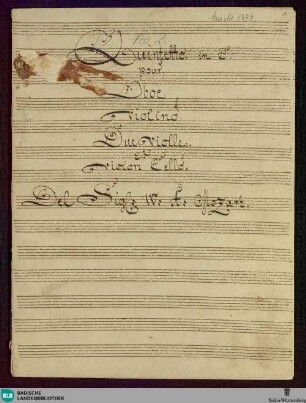 Quintetto in C.
pour
Oboe
Violino
Due Violle.
Violon Cello.
Del Sigre W. A. Mozart.
BLB BADISCHE
LANDESBIBLIOTHEK
Baden-Württemberg